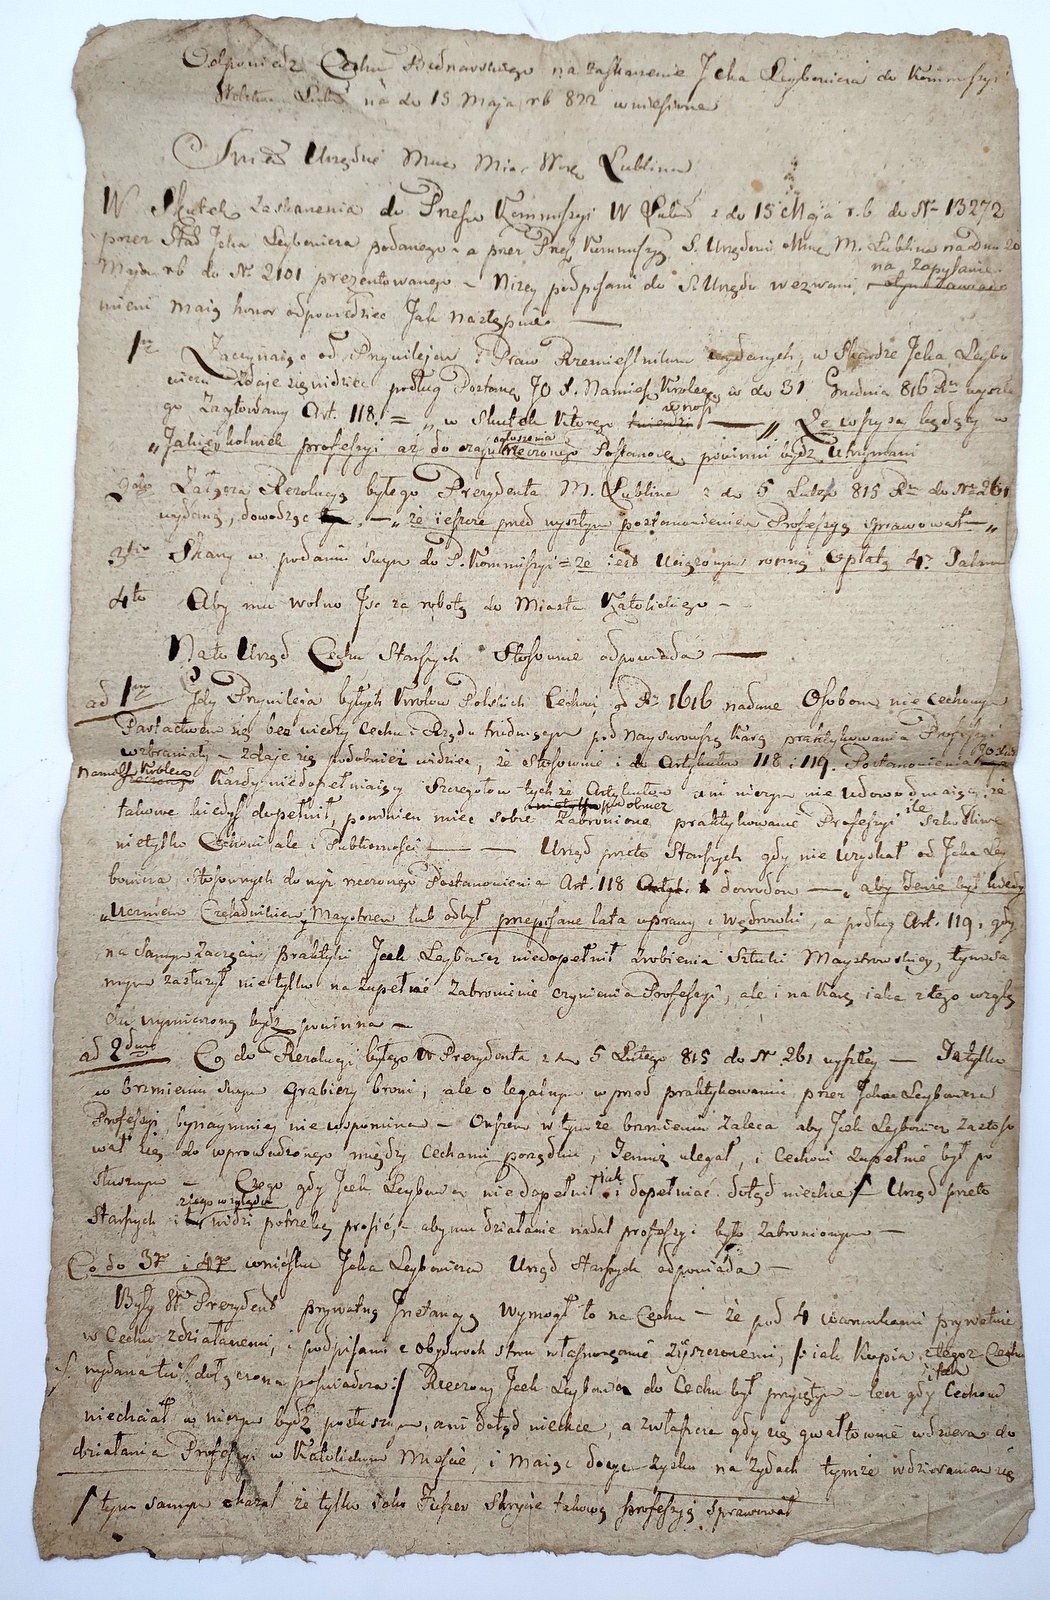 Odpowiedz Cechu Bednarskiego na zaskarzenie Jcka Leybowicza do Kommissyi
na do 15 Maja rb 822 wniesione
Urzędu Mun Mias Woje Lublina
W Skutek zaskarzenia do Prześw Kommissyi W Lubel z do 15 Maja r.b do Nr 13272
przez Star Jcka Leybowicza podanego – a przez Prześ Kommissyą S. Urzędowi Mun M. Lublina na Dniu 20
Maja rb do Nr 2101 prezentowanego – Niżey podpisani do S. Urzędu wezwani na zapytanie
mieni maią honor odpowiedziec Jak następnie –
1mo Zaczynaiąc od Przywilejow i Praw Rzemieslnikom wydanych, w Skardze Jcka Leybo
wicza zdaje się widziec podług Postanow JO X. Namies Krolew w do 31 Grudnia 816 Ru wyszłe
go Zacytowany Art. 118. = „ w Skutek Ktorego wnosi — „ Że wszyscy będący w
„ Jakieykolwiek professyi aż do czasu ogłoszenia rzeczonego Postanow powinni bydź utrzymani
2do Załącza Rezolucyą byłego Prezydenta M. Lublina z do 5 Lutego 815 Ru do Nr 261
wydaną, dowodząc – „ że ieszcze przed wyszłym postanowieniem Professyą sprawował – „
3tio Skarzy w podaniu swym do P. Kommissyi = że iest Uciążonym roczną Opłatą 4. Talarow
4to Aby mu wolno Jsc za robotą do Miasta Katolickiego –
Na to Urząd Cechu Starszych Stosownie odpowiada —
ad 1mum Gdy Przywileja byłych Krolow Polskich Cechowi od Ru 1616 nadane Osobom nie cechowym
Partactwem się bez wiedzy Cechu i Rządu trudniącym pod naysurowszą karą praktykowania Professyi
wzbraniały – zdaje się podobnież widziec, że Stosownie i do Artykułow 118 i 119. Postanowienia JO Xcia
Namies Krolew Każdy niedopełniaiący Szczegołow tychże Artykułow ani niczym nie udowodniaiący że
takowe kiedyś dopełnił, powinien miec sobie podobniez Zabronione praktykowanie Professyi ile szkodliwe
nietylko Cechowi ale i Publicznosci — — Urząd przeto Starszych gdy nie uzyskał od Jcka Ley
bowicza Stosownych do wyż rzeczonego Postanowienia Art. 118 dowodow — „ aby Jenże był kiedy
„ Uczniem Czeladnikiem, Maystrem lub odbył przepisane lata wprawy i wędrowki, a podług Art. 119, gdy
na samym zaczęciu Praktyki Jcek Leybowicz niedopełnił zrobienia Sztuki Maystrowskiey, tym sa
mym zasłużył nietylko na zupełne zabronienie czynienia Professyi, ale i na karę iaka z tego wzglę
du wymierzoną bydz powinna –
ad 2dum Co do Rezolucyi byłego W Prezydenta z do 5 Lutego 815 do Nr. 261 wyszłey — Ta tylko
w brzmieniu swym grabieży broni, ale o legalnym w przod praktykowaniu przez Jcka Leybowicza
Professyi, bynaymniey nie wspomina – Owszem w tymże brzmieniu zaleca aby Jcek Leybowicz zastoso
wał się do wprowadzonego między Cechami porządku, Jemuż ulegał, i Cechowi zupełnie był po
słusznym – Czego gdy Jcek Leybowicz niedopełnił iak i dopełniać dotąd niechce / Urząd przeto
Starszych z tego względu widzi potrzebę prosić, – aby mu działanie nadal professyi było zabronionym –
Co do 3go i 4go wniosku Jcka Leybowicza Urząd Starszych odpowiada –
Były W Prezydent prywatną Instancyą wymogł to na Cechu – że pod 4 warunkami prywatnie
w Cechu zdziałanemi, i podpisami z obydwoch stron własnoręcznie ziszczonemi, /: iak Kopia z tegoż Cechu
wydana tu dołączona poswiadcza :/ Rzeczony Jcek Leybowicz do Cechu był przyiętym – lecz gdy Cechowi
niechciał w niczym bydź posłusznym, ani dotąd niechce, a zwłaszcza gdy się gwałtownie wdziera do
działania Professyi w Katolickim Miescie, i maiąc dosyc zysku na Żydach tymże wdzieraniem się
/ tym samym okazał że tylko iako Fuszer Skrycie takową professyą sprawował